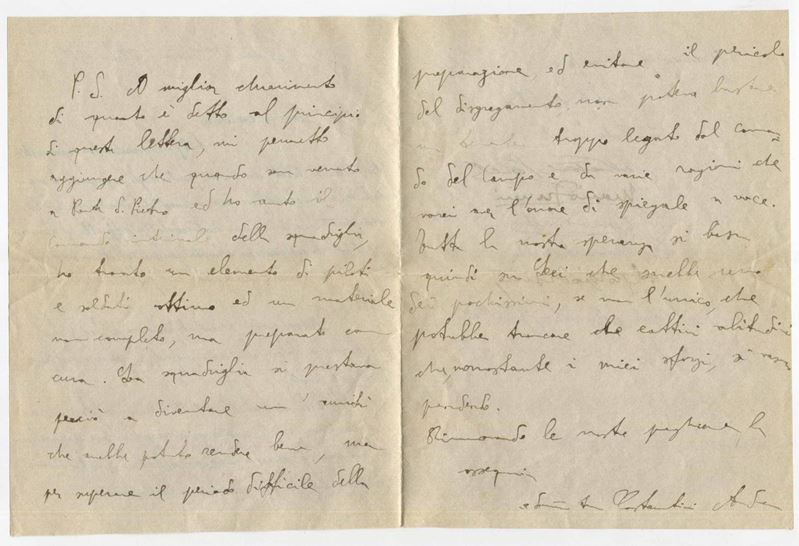 P. S. A miglior chiarimento
di quanto è detto al principio
di questa lettera, mi permetto
aggiungere che quando son venuto
a Ponte S. Pietro ed ho avuto il
comando interinale della squadriglia,
ho trovato un elemento di piloti
e soldati ottimo ed un materiale
non completo, ma preparato con
cura. La squadriglia si prestava
perciò a diventare un'unità
che avrebbe potuto rendere bene, ma
per superare il periodo difficile della
preparazione, ed evitare il pericolo
del disgregamento, non poteva bastare
un troppo legato dal coman-
do del Campo e da varie ragioni che
vorrei aver l'onore di spiegarle a voce.
Tutta la nostra speranza si basa
quindi su Lei che sarebbe uno
dei pochissimi, se non l'unico, che
potrebbe troncare che cattive abitudini
che, nonostante i miei sforzi, si vanno
prendendo.
Rinnovando le nostre preghiere, La
ossequia
Costantini